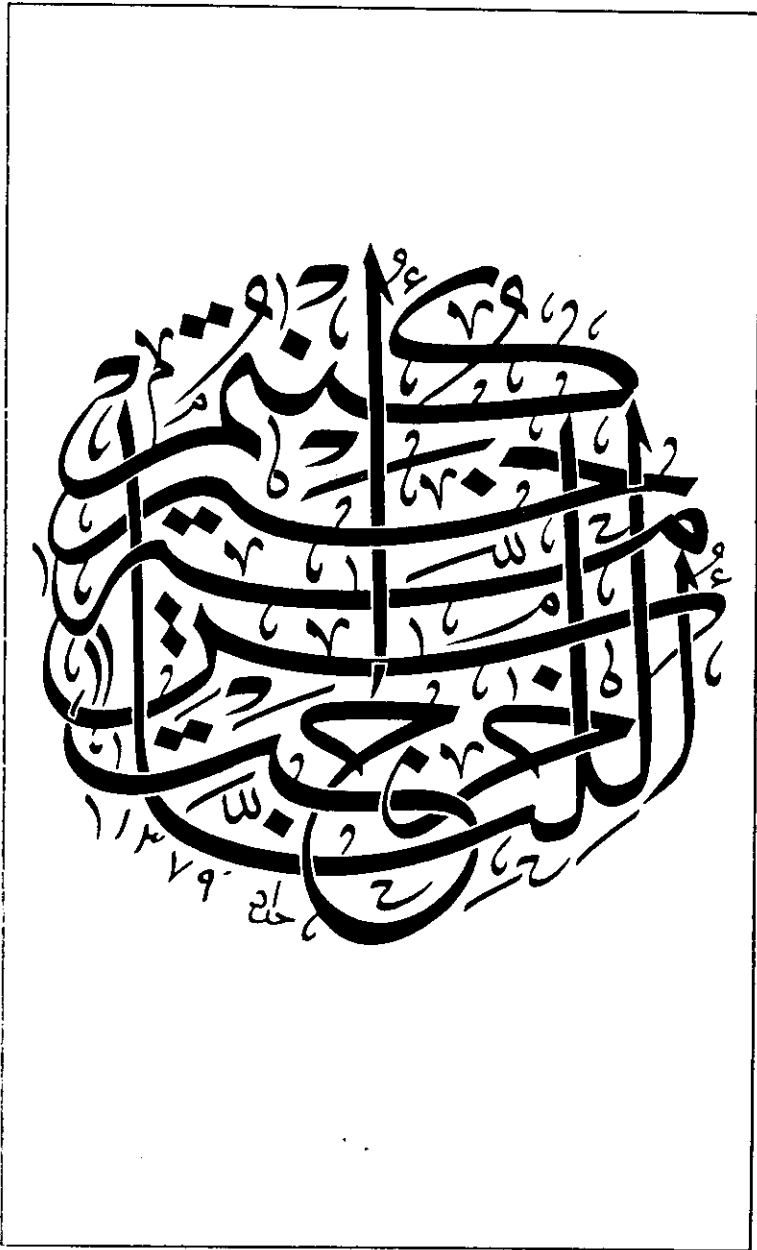 كُنْتُمْ خَيْرَ أُمَّةٍ أُخْرِجَتْ لِلنَّاسِ
١٣٧٩